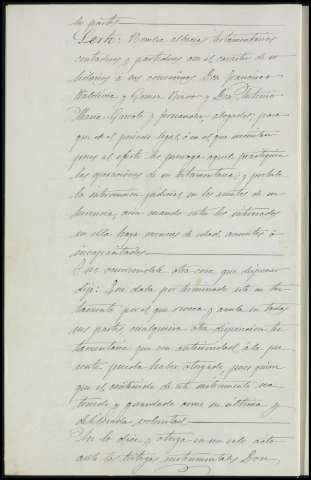 las partes
Sexta: Nombra albaceas testamentarios
contadores y partidores con el caracter de so
lidarios á sus convecinos Don Francisco
Valdivia y Gomez Bravo y Don Antonio
María y Fernandez, abogados, para
que en el periodo legal, ó en el que necesiten
pues al efecto les proroga aquel, practiquen
las operaciones de su testamentaria; y prohibe
la intervencion judicial en los asuntos de su
herencia, aun cuando entre los interesados
en ella haya menores de edad, ausentes ó
incapacitados
Y no ocurriendole otra cosa que disponer
dijo: Que daba por terminado este su tes
tamento por el que revoca y anula en todas
sus partes, cualquiera otra disposicion tes
tamentaria que con anterioridad á la pre
sente pueda haber otorgado, pues quiere
que el contenido de este instrumento sea
tenido y guardado como su última y
deliberada voluntad
Así lo dice y otorga en un solo acto
ante los testigos instrumentales Don